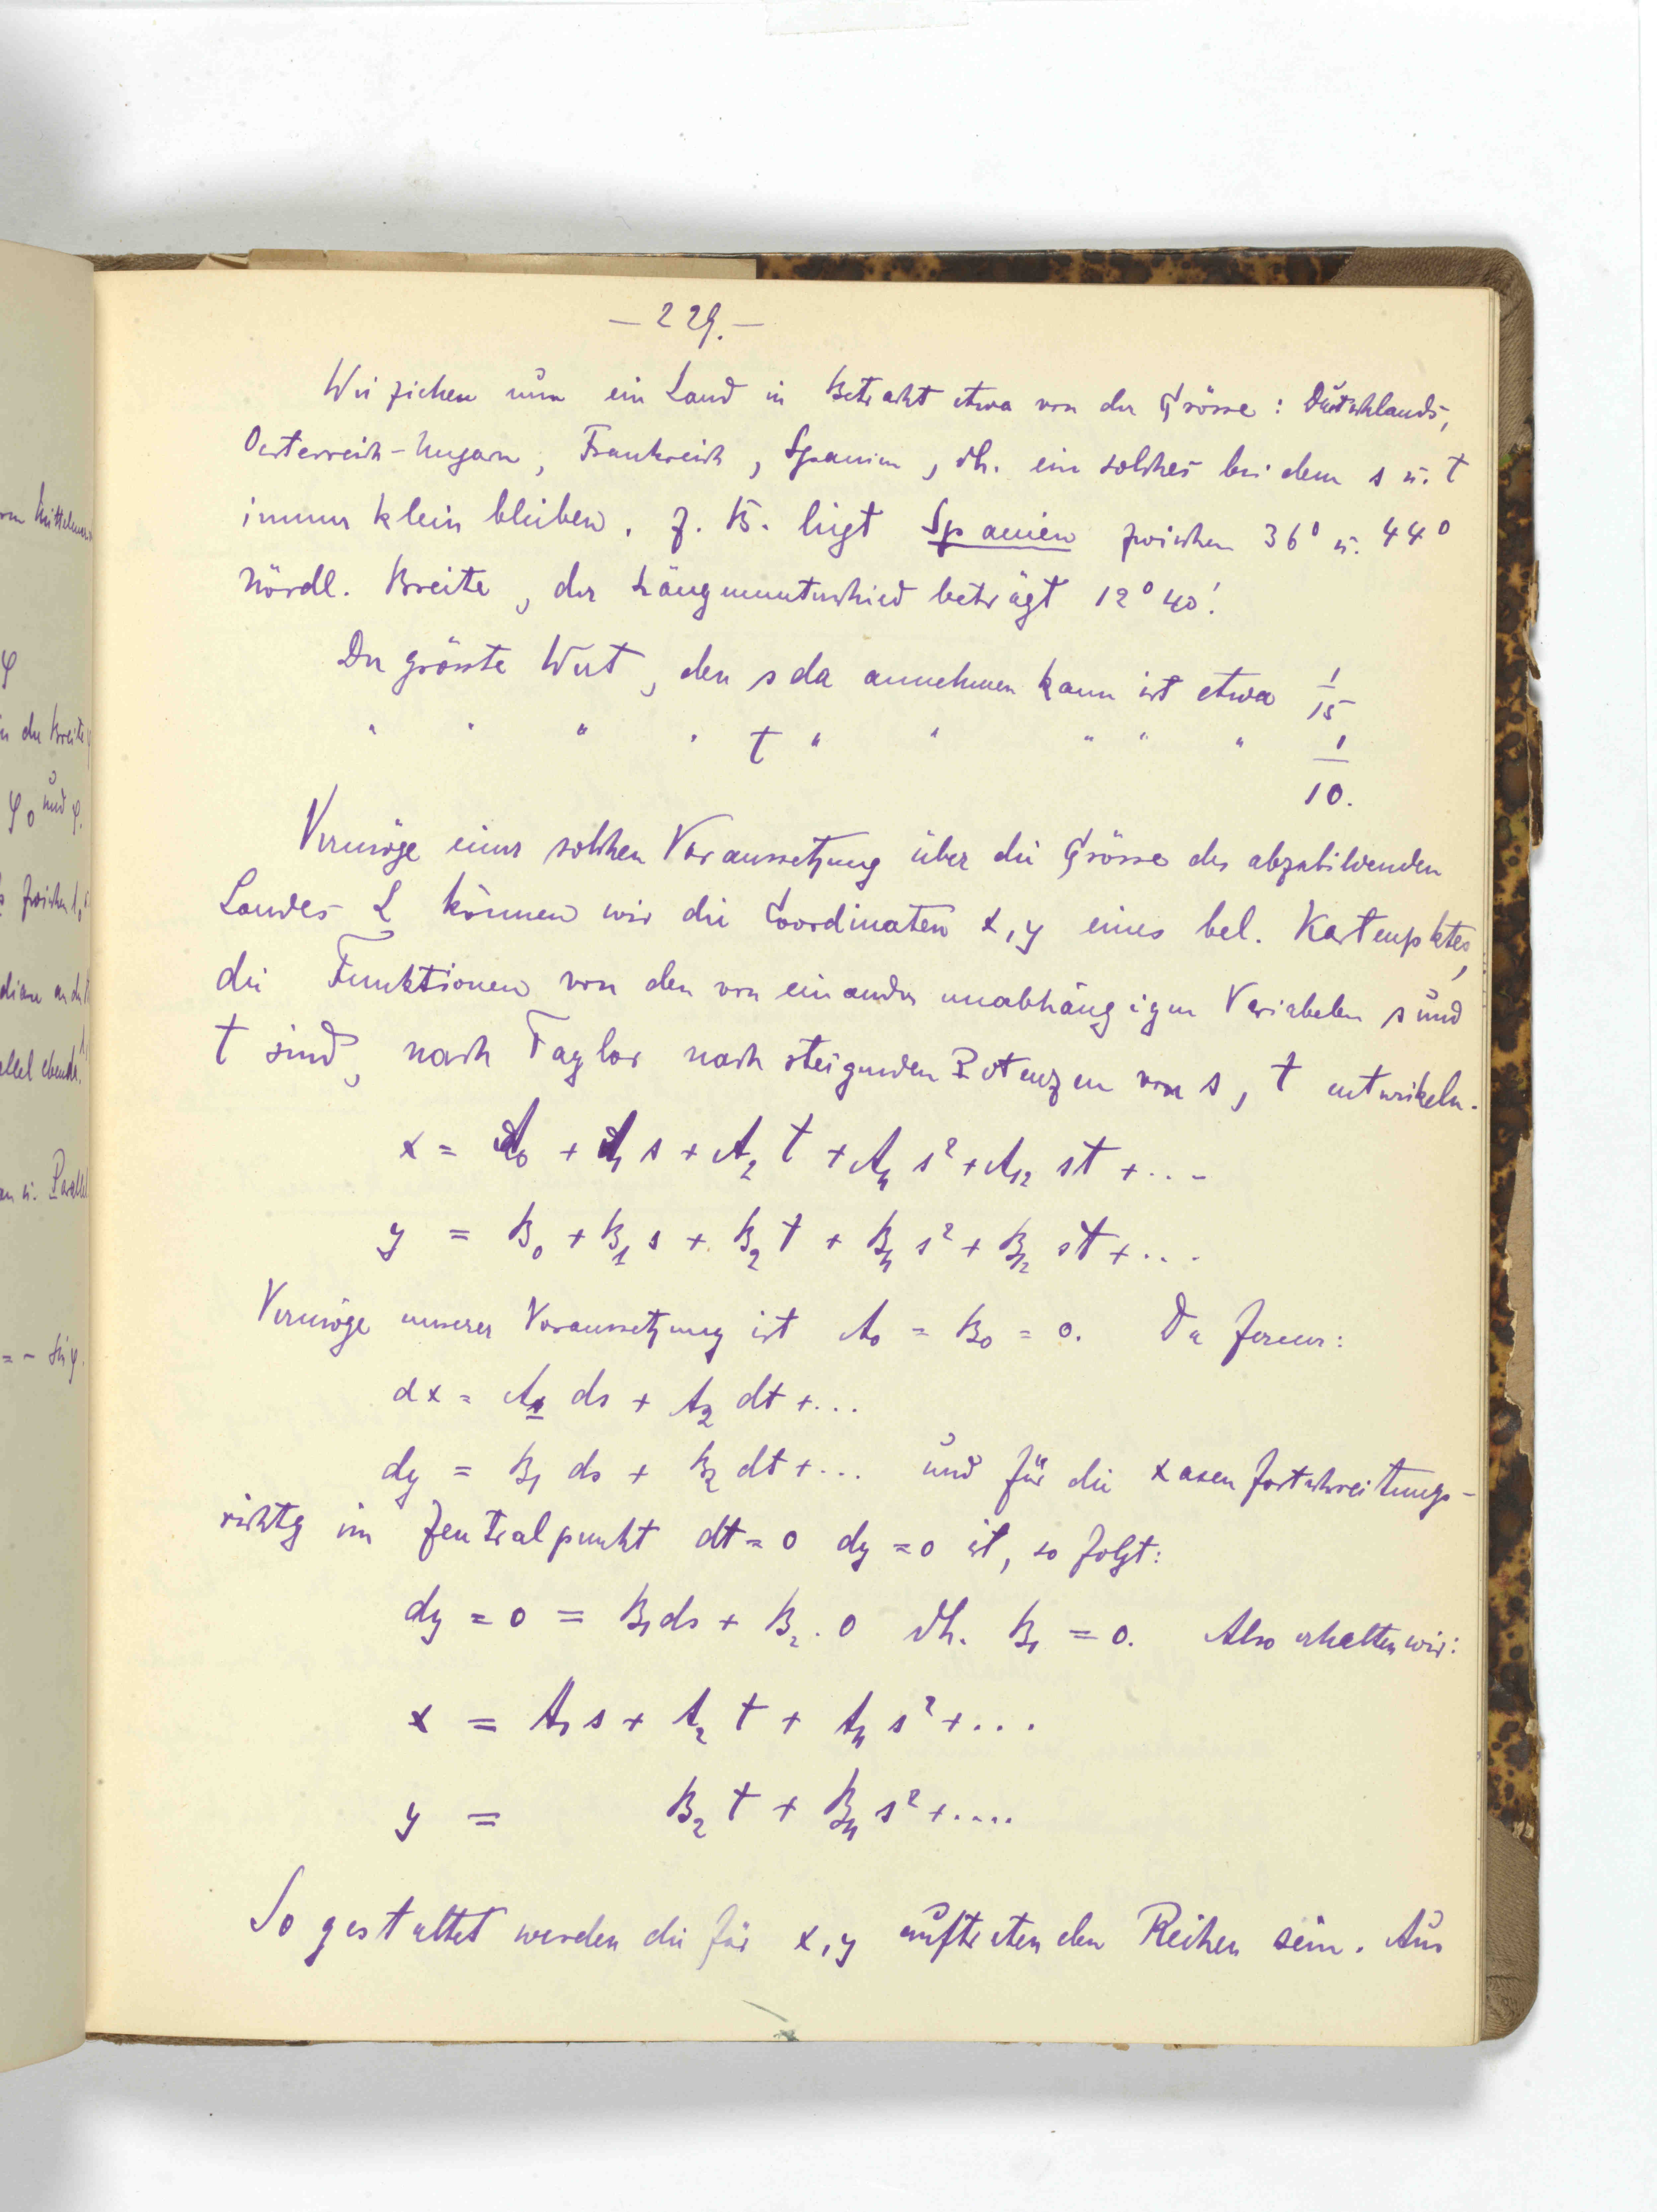 — 229. —
Wir ziehen nun ein Land in Betracht etwa von der Grösse: Deutschlands,
Oesterreich-Ungarn, Frankreich, Spanien, dh. ein solches bei dem s u. t
immer klein bleiben. Z. B. liegt Spanien zwischen 36° u. 44°
nördl. Breite, der Längenunterschied beträgt 12° 40'.
Der grösste Wert, den s da annehmen kann ist etwa 1/15
" " " " t " " " " " 1/10.
Vermöge einer solchen Voraussetzung über die Grösse des abzubildenden
Landes L können wir die Coordinaten x, y eines bel. Kartenpktes,
die Funktionen von den von einander unabhängigen Variabelen s und
t sind, nach Taylor nach steigenden Potenzen von s, t entwickeln.
x = A₀ + A₁ s + A₂ t + A₁₁ s² + A₁₂ st + ...
y = B₀ + B₁ s + B₂ t + B₁₁ s² + B₁₂ st + ...
Vermöge unserer Voraussetzung ist A₀ = B₀ = 0. Da ferner:
dx = A₁ ds + A₂ dt + ...
dy = B₁ ds + B₂ dt + ... und für die x axen fortschreitungs-
richtg im Zentralpunkt dt = 0 dy = 0 ist, so folgt:
dy = 0 = B₁ ds + B₂ . 0 dh. B₁ = 0. Also erhalten wir:
x = A₁ s + A₂ t + A₁₁ s² + ...
y = B₂ t + B₁₁ s² + ....
So gestaltet werden die für x, y auftretenden Reihen sein. Aus
φ
in der Breite φ
φ₀ und φ.
= - sin φ.